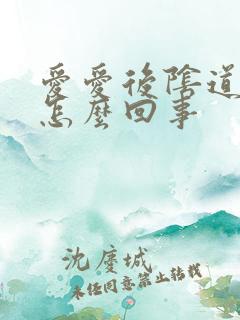 愛愛後陰道
怎麼回事
沈慶城
未经同意禁止转载